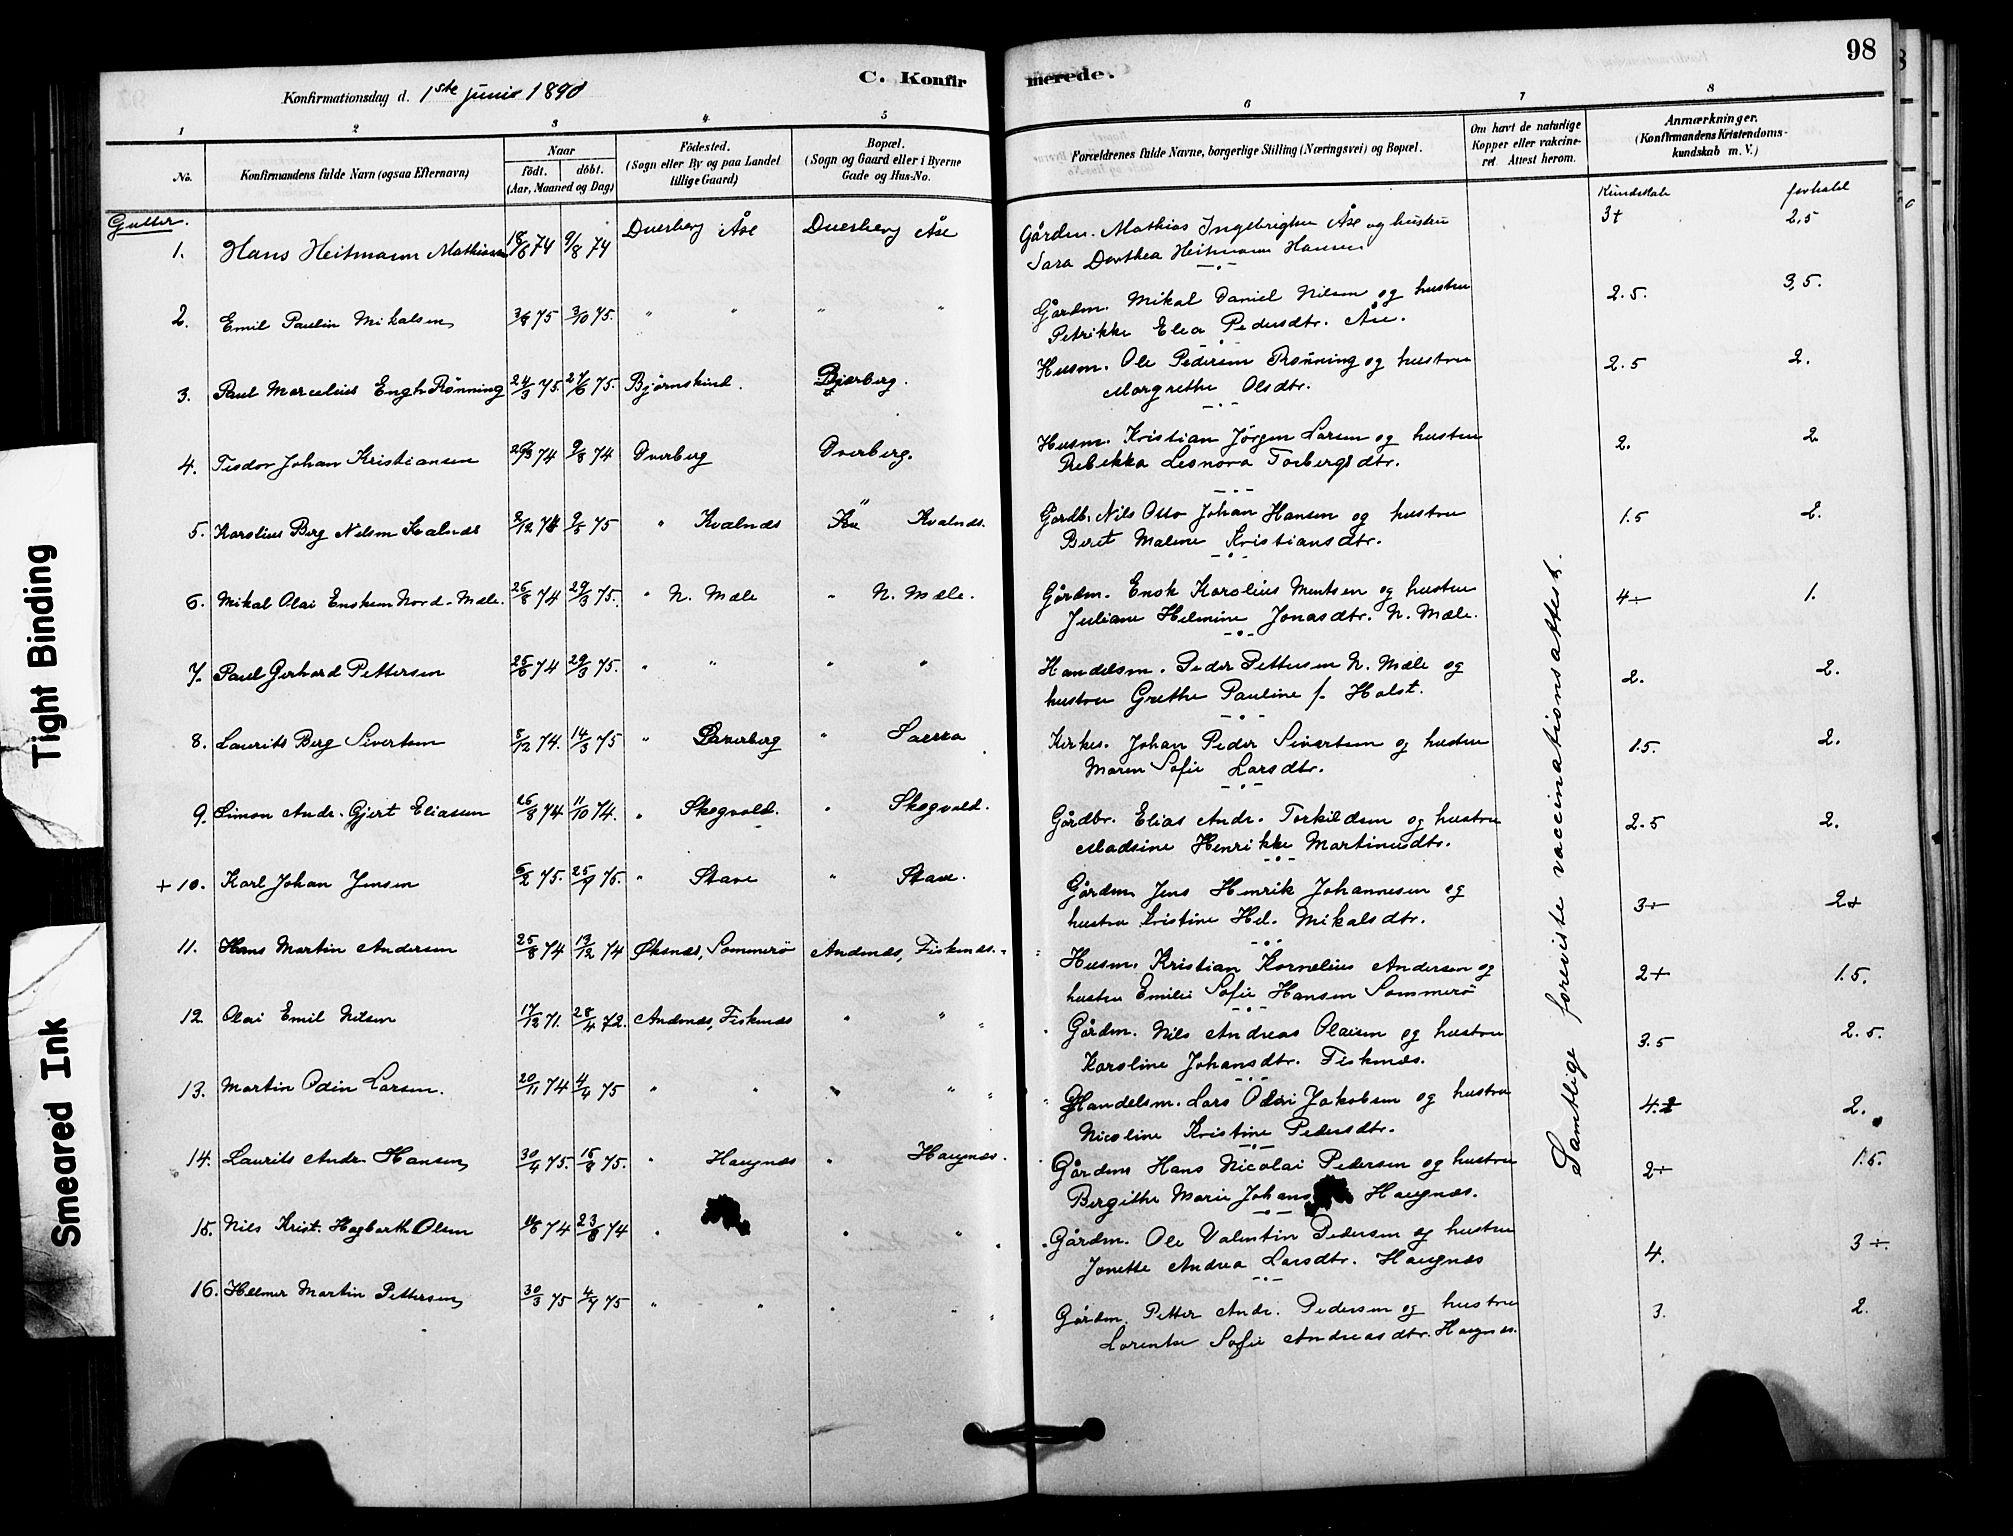 98
C. Konfirmerede.
Konfirmationsdag d. 1ste juni 1890
1 2 3 4 5 6 7 8
No.
Konfirmandens fulde Navn (ogsaa Efternavn)
Naar
født. døbt.
(Aar, Maaned og Dag)
Fødested.
(Sogn eller By og paa Landet
tillige Gaard)
Bopæl.
(Sogn og Gaard eller i Byerne
Gade og Hus-No.
Forældrenes fulde Navne, borgerlige Stilling (Næringsvei) og Bopæl.
Om havt de naturlige
Kopper eller vakcine-
ret. Attest herom.
Anmærkninger.
(Konfirmandens Kristendoms-
kundskab m. V.)
Kundskab forhold
Gutter.
1. Hans Heitmann Mathiassen 18/6 74 9/8 74 Dverberg Åse Dverberg Åse Gårdm. Mathias Ingebrigtsen Åse og hustru 3+ 2.5
Sara Dorthea Heitmann Hansen
2. Emil Paulin Mikalsen 3/8 75 3/10 75. " " " " Gårdm. Mikal Daniel Nilsen og hustru 2.5. 3,5.
Petrikke Elea Pedersdtr. Åse.
3. Paul Marcelius Engh Rønning 24/3 75. 27/6 75. Bjørnskind. Bjerberg. Husm. Ole Pedersen Rønning og hustru 2.5 2.
Margrethe Olsdtr.
4. Tesdor Johan Kristiansen 74 9/8 74 Dverberg Dverberg. Husm. Kristian Jørgen Larsen og hustru 2. 2
Rebekka Leonora Torbergsdtr.
5. Karolius Berg Nilsen Kvalnæs 2/12 74 9/5 75 " Kvalnæs " Kvalnæs. Gårdb. Nils Otto Johan Hansen og hustru 1.5 2.
Beret Malene Kristiansdtr.
6. Mikal Olai Enoksen Nord-Mæle. 26/8 74 29/3 75. " N. Mæle " N. Mæle. Gårdm. Enok Karolius Mentsen og hustru 4÷ 1.
Juliane Helmine Jonasdtr. N. Mæle.
7. Paul Gerhard Pettersen 25/6 74 29/3 75. " " " " Handelsm. Peder Pettersen N. Mæle og 2. 2.
hustru Grethe Pauline f. Holst.
8. Laurits Berg Sivertsen 8/12 74. 14/3 75 " Dverberg " Saura Kirkes. Johan Peder Sivertsen og hustru 1.5. 2.
Maren Sofie Larsdtr.
9. Simon Andr. Gjert Eliassen 26/8 74 11/10 74. " Skogvold. " Skogvold. Gårdbr. Elias Andr. Torkildsen og hustru 2.5 2.
Madsine Henrikke Martinusdtr.
+ 10. Karl Johan Jensen 6/2 75. 25/9 75. " Stave " Stave. Gårdm. Jens Henrik Johannesen og 3÷ 2+
hustru Kristine Hel. Mikalsdtr.
11. Hans Martin Andersen 25/8 74 13/12 74 Øksnæs, Sommerø Andenæs, Fiskenæs. Husm. Kristian Kornelius Andersen og 2+ 1.5.
hustru Emilie Sofie Hansen Sommerø
12. Olai Emil Nilsen 17/12 71. 28/4 72. Andenæs, Fiskenæs " " " Gårdm. Nils Andreas Olaisen og hustru 3.5 2.5.
Karoline Johansdtr. Fiskenæs.
13. Martin Odin Larsen. 20/11 74 4/4 75 " " " " " Handelsm. Lars Olai Jakobsen og hustru 4. 2.
Nicoline Kristine Pedersdtr.
14. Laurits Andr. Hansen 30/4 75. 75. " Haugnæs " Haugnæs. Gårdm Hans Nicolai Pedersen og hustru 2÷ 1.5.
Bergithe Marie Johans Haugnæs.
15. Nils Krist. Hagbarth Olsen 74 23/8 74 " " " Gårdm. Ole Valentin Pedersen og hustru 4. 3÷.
Jonette Andrea Larsdtr. Haugnæs
16. Helmer Martin Pettersen 30/3 75 4/7 75 " " " " Gårdm. Petter Andr. Pedersen og hustru 3. 2.
Lorentse Sofie Andreasdtr. Haugnæs.
Samtlige foreviste vaccinationsattest.
Tight Binding
Smeared Ink